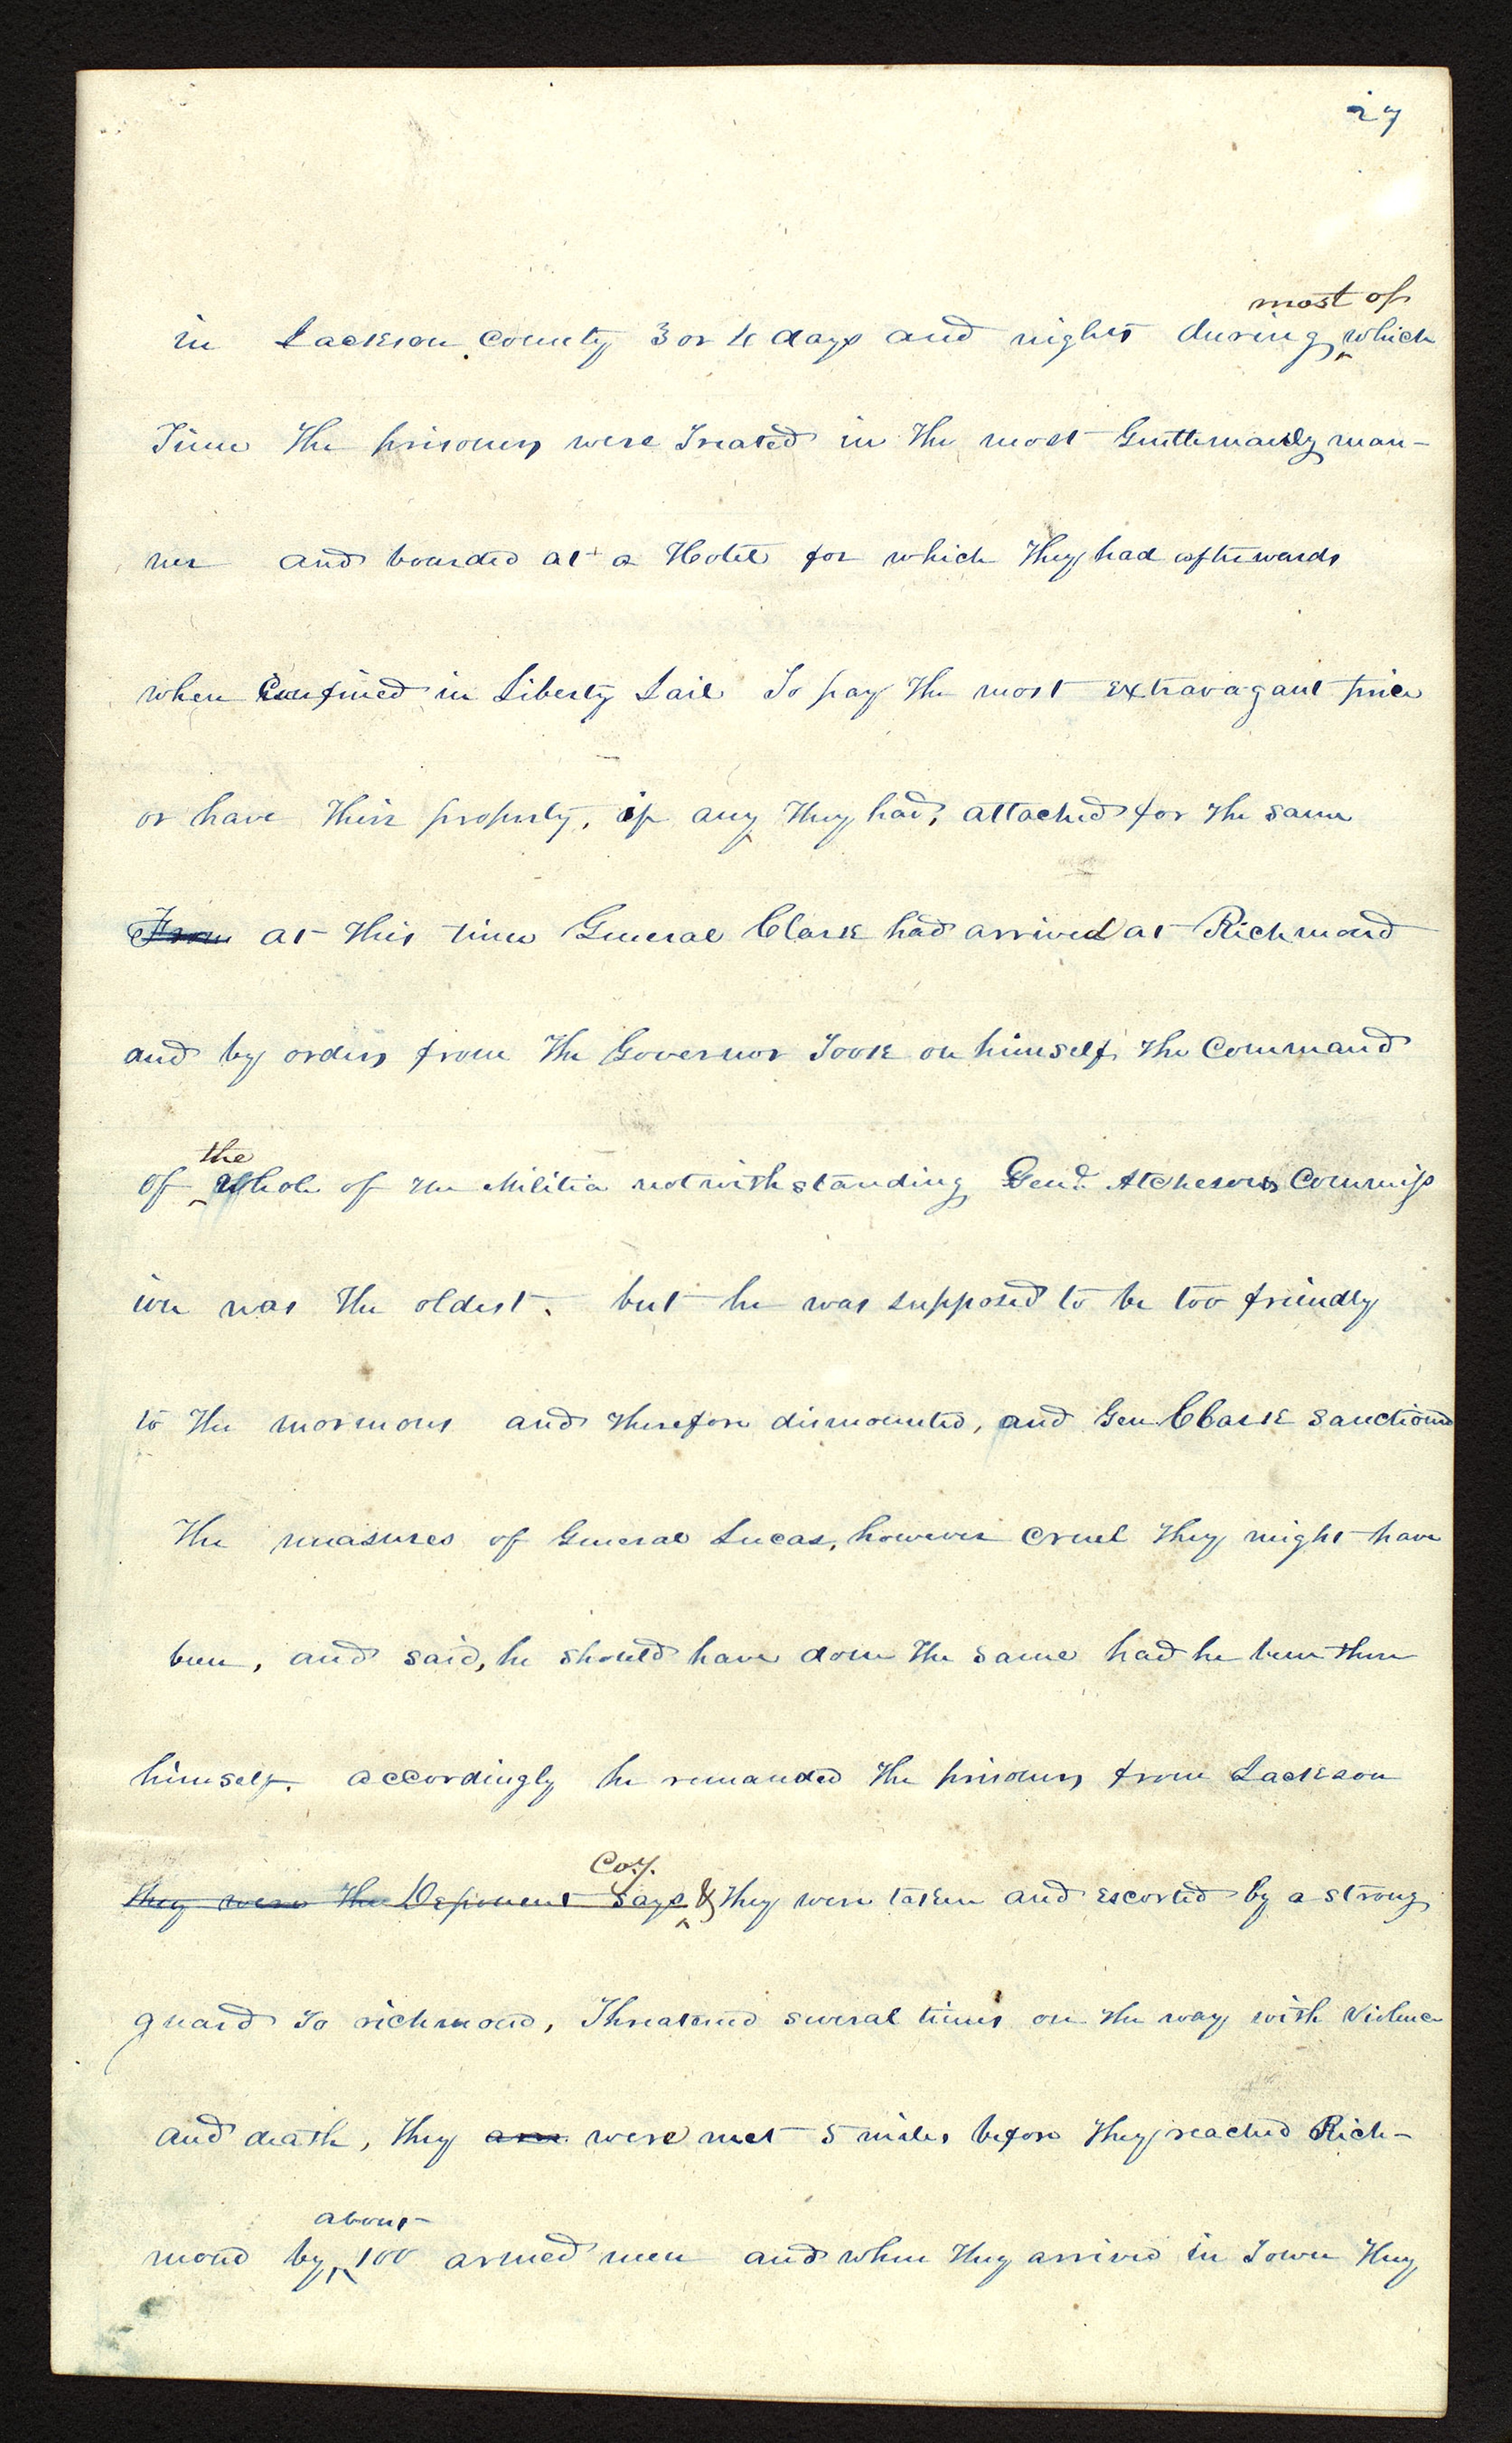 27
most of
in Jackson County 3 or 4 days and nights during ‸ which
Time the prisoners were Treated in the most Gentlemanly man-
ner and boarded at a Hotel for which they had afterwards
when Confined in Liberty Jail To pay the most extravagant price
or have their property, if any they had, attached for the same
From at this time General Clark had arrived at Richmond
and by orders from the Governor Took on himself the Command
the
of ‸ whole of the Militia notwithstanding Genl. Atchesons Commiss
ion was the oldest. but he was supposed to be too friendly
to the mormons and therefore dismounted, and Gen Clark sanctioned
the measures of General Lucas, however cruel they might have
been, and said, he should have done the same had he been there
himself. accordingly he remanded the prisoners from Jackson
Coy.
they were the Deponent says ‸ & they were taken and escorted by a strong
guard to richmond, Threatened several times on the way with violence
and death, they are were met 5 miles before they reached Rich-
about
mond by ‸ 100 armed men and when they arrived in Town they